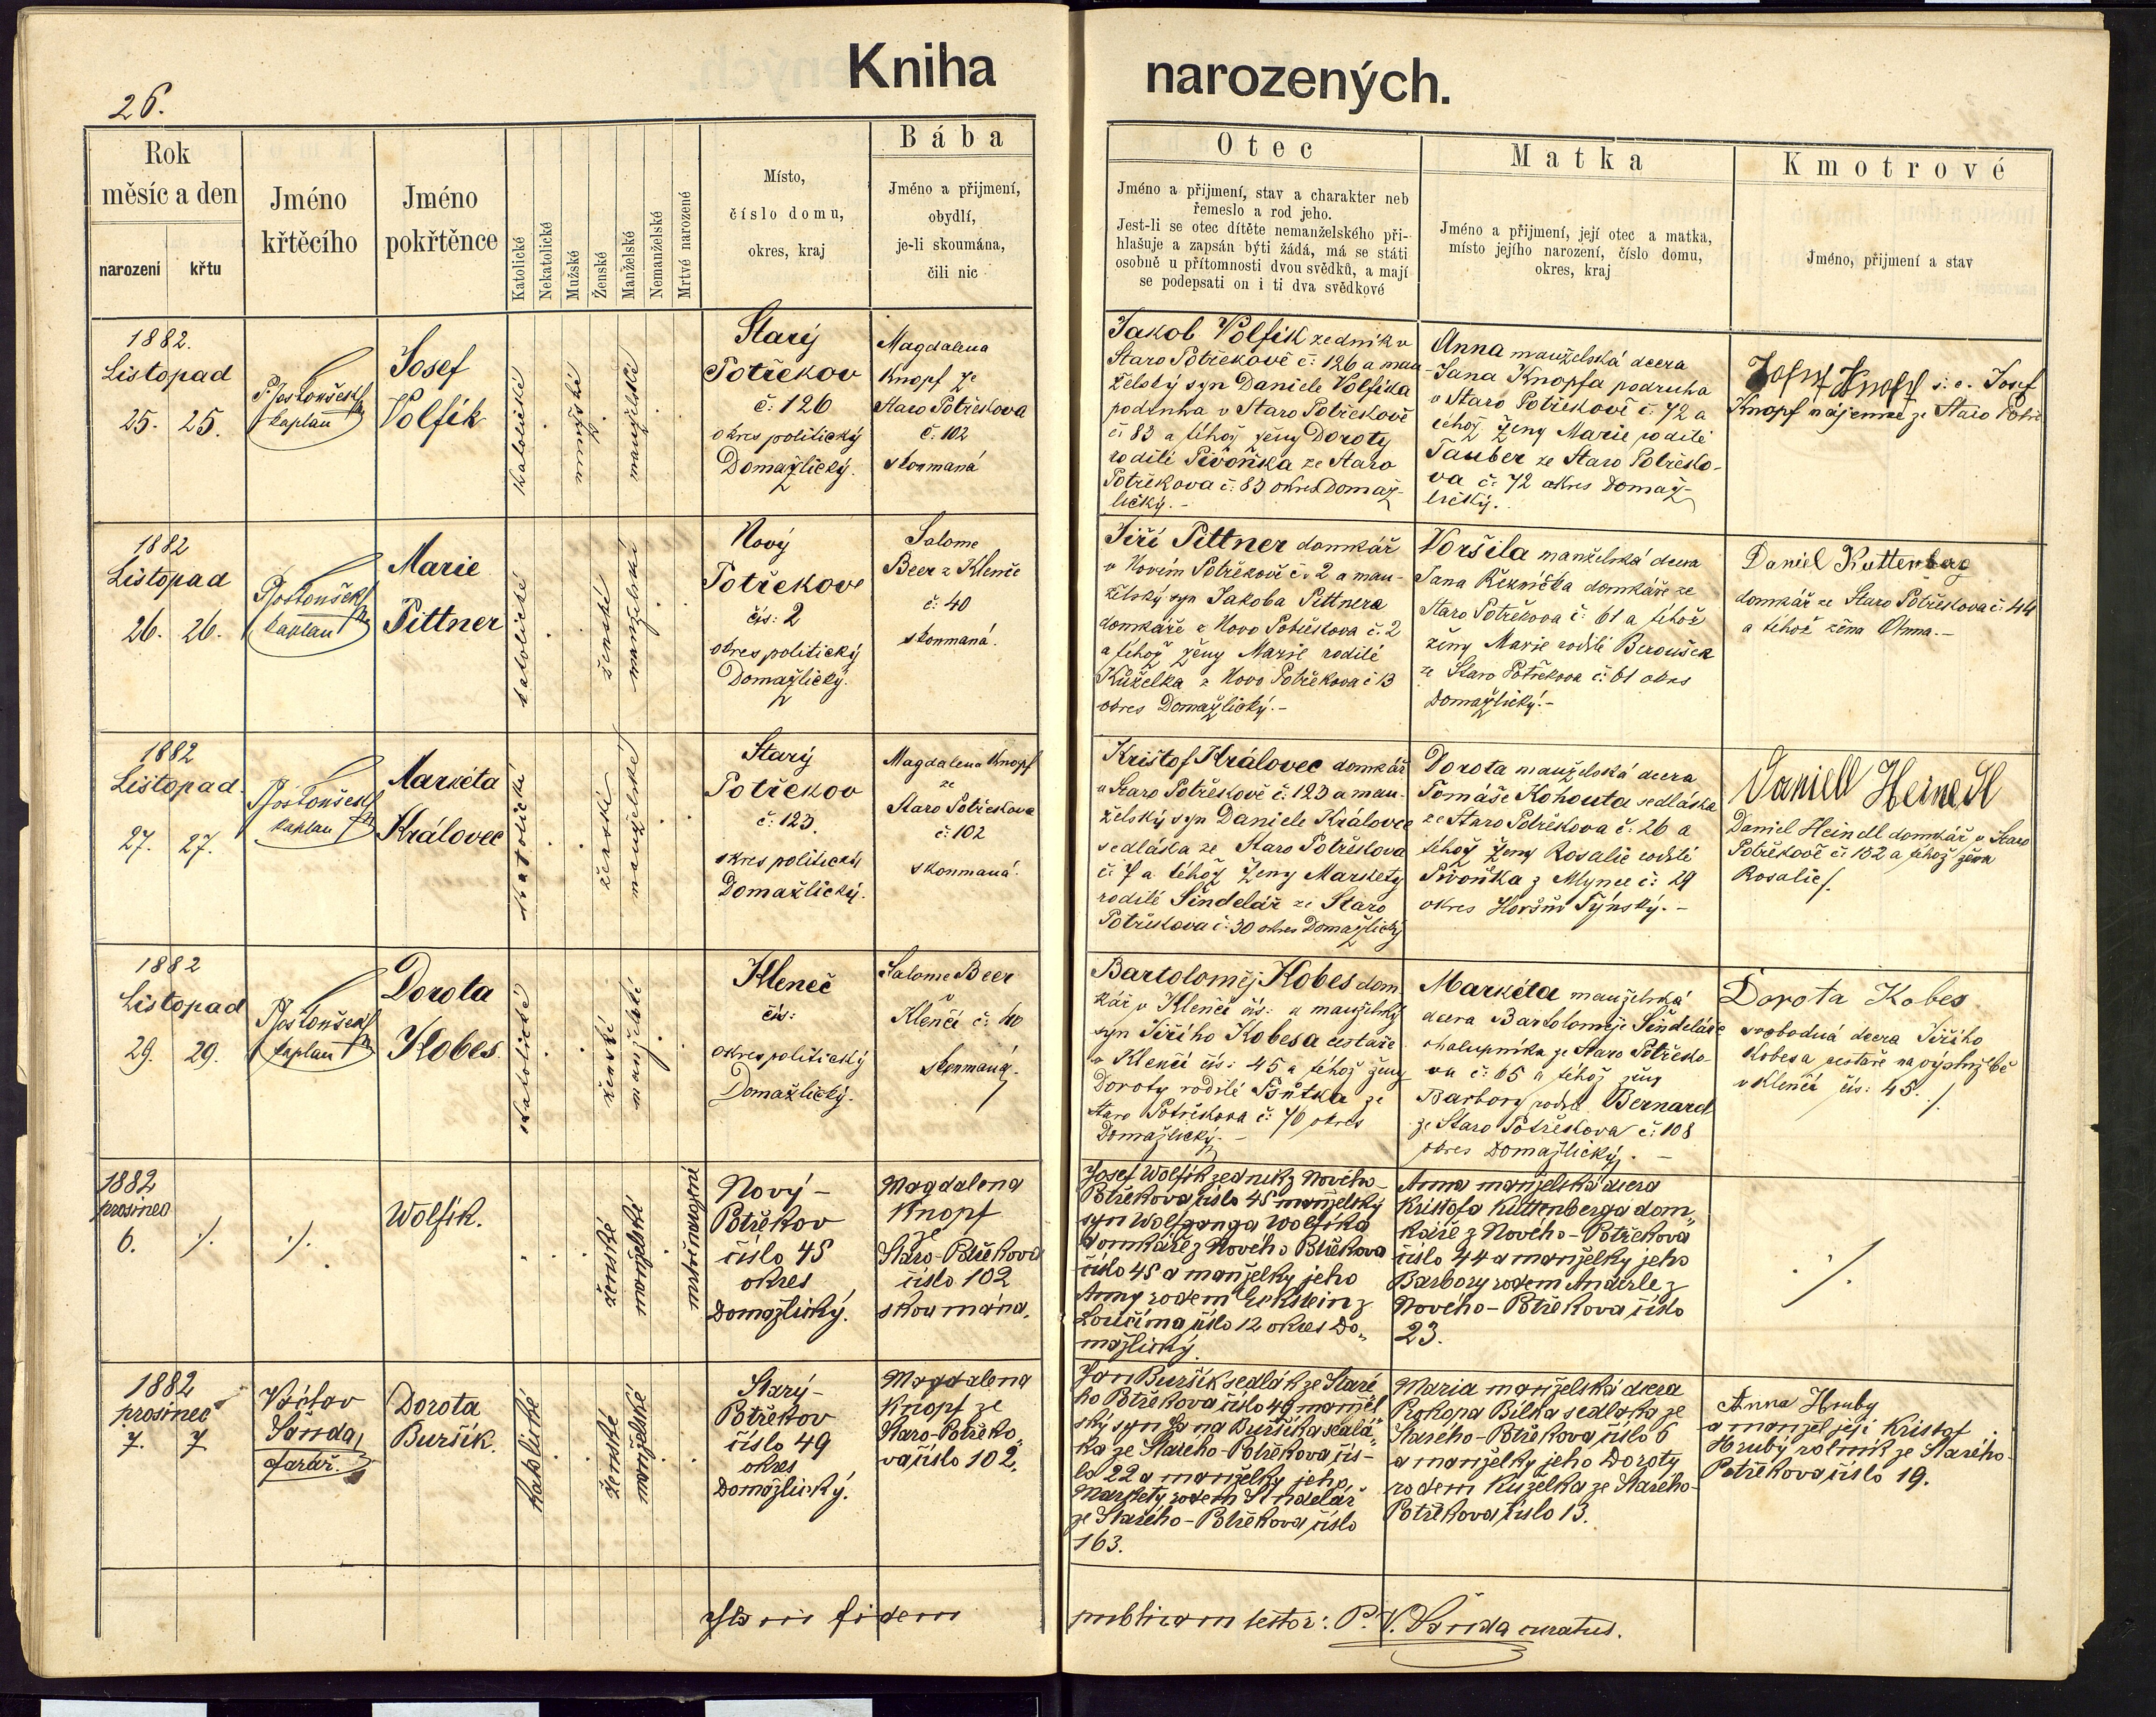 26.
Kniha narozených.
Rok
měsíc a den
narození
křtu
Jméno
křtěcího
Jméno
pokřtěnce
Katolické
Nekatolické
Mužské
Ženské
Manželské
Nemanželské
Mrtvě narozené
Místo,
číslo domu,
okres, kraj
Bába
Jméno a příjmení,
obydlí,
je-li skoumána,
čili nic
Otec
Jméno a přijmení, stav a charakter neb
řemeslo a rod jeho.
Jest-li se otec dítěte nemanželského při-
hlašuje a zapsán býti žádá, má se státi
osobně u přítomnosti dvou svědků, a mají
se podepsati on i ti dva svědkové
Matka
Jméno a přijmení, její otec a matka,
místo jejího narození, číslo domu,
okres, kraj
Kmotrové
Jméno, přijmení a stav
1882.
Listopad
25. 25.
kaplan
Josef
Volfík
katolické
mužské
manželské
Starý
Potřekov
č: 126
okres politický
Domažlický.
Magdalena
Knopf ze
Staro Potřekova
č: 102
skoumaná
Jakob Volfík zedník v
Staro Potřekově č: 126 a man
želský syn Daniele Volfíka
podruha v Staro Potřekově
č: 83 a téhož ženy Doroty
rodilé Pivoňka ze Staro
Potřekova č: 83 okres Domaž-
lický.-
Anna manželská dcera
Jana Knopfa podruha
v Staro Potřekově č: 72 a
téhož ženy Marie rodilé
Tauber ze Staro Potřeko-
va č: 72 okres Domaž-
lický.
Josef Knopf s. c. Josef
Knopf nájemné ze Staro Potře
1882
Listopad
26. 26.
kaplan
Marie
Pittner
katolické
ženské
manželské
Nový
Potřekov
čís: 2
okres politický
Domažlický.
Salome
Beer z Klenče
č: 40
skoumaná.
Jiří Pittner domkář
v Novém Potřekově č: 2 a man-
želský syn Jakoba Pittnera
domkáře z Novo Potřekova č: 2
a téhož ženy Marie rodilé
Kuželka z Novo Potřekova č 13
okres Domažlický.-
Voršila manželská dcera
Jana Řezníčka domkáře ze
Staro Potřekova č: 61 a téhož
ženy Marie rodilé Beroušek
ze Staro Potřekova č: 61 okres
Domažlický.-
Daniel Kuttenberg
domkář ze Staro Potřekova č: 44
a téhož žena Anna.-
1882
Listopad.
27. 27.
kaplan
Markéta
Královec
katolické
ženské
manželské
Starý
Potřekov
č: 123.
okres politický
Domažlický.
Magdalena Knopf
ze
Staro Potřekova
č: 102
skoumaná.
Krištof Královec domkář
v Staro Potřekově č: 123 a man-
želský syn Daniele Královce
sedláka ze Staro Potřekova
č: 7 a téhož ženy Markety
rodilé Šindelář ze Staro
Potřekova č: 30 okres Domažlický
Dorota manželská dcera
Tomáše Kohouta sedláka
ze Staro Potřekova č: 26 a
téhož ženy Rosalie rodilé
Pivoňka z Mlynce č: 29
okres Horšův Týnský.-
Daniell Heinedl
Daniel Heindl domkář v Staro
Potřekově č: 152 a téhož žena
Rosalie/.
1882
Listopad
29. 29.
kaplan
Dorota
Kobes
katolické
ženské
manželské
Kleneč
čís:
okres politický
Domažlický.
Salome Beer
v
Klenčí č: 40
skoumaná.
Bartoloměj Kobes dom
kář v Klenčí čís: a manželský
syn Jiřího Kobesa cestaře
v Klenčí čís: 45 a téhož ženy
Doroty rodilé ze
Staro Potřekova č: 76 okres
Domažlický.-
Markéta manželská
dcera Bartoloměje Šindeláře
chalupníka ze Staro Potřeko-
va č: 65 a téhož ženy
Barbory rodilé Bernard
ze Staro Potřekova č: 108
okres Domažlický.-
Dorota Kobes
svobodná dcera Jiřího
Kobesa cestaře na výslužbě
v Klenčí čís: 45. /.
1882
prosinec
6. ./. ./.
Wolfík.
ženské
manželské
mrtvě narozené
Nový-
Potřekov
číslo 45
okres
Domažlický.
Magdalena
Knopf
ze
Staro-Potřekova
číslo 102
skoumána.
Josef Wolfík zedník z Nového-
Potřekova číslo 45 manželský
syn Wolfganga Wolfíka
domkáře z Nového Potřekova
číslo 45 a manželky jeho
Anny rodem Eckstein z
Loučima číslo 12 okres Do-
mažlický.
Anna manželská dcera
Kristofa Kuttenberga dom-
káře z Nového-Potřekova
číslo 44 a manželky jeho
Barbory rodem Anderle z
Nového-Potřekova číslo
23.
./.
1882
prosinec
7. 7
Václav
Šanda,
farář.
Dorota
Buršík.
katolické
ženské
manželské
Starý-
Potřekov
číslo 49
okres
Domažlický.
Magdalena
Knopf ze
Staro-Potřeko-
va číslo 102.
Jan Buršík sedlák ze Staré
ho Potřekova číslo 49 manžel
ský syn Jana Buršíka sedlá-
ka ze Starého-Potřekova čís-
lo 22 a manželky jeho
Markety rodem Šindelář
ze Starého-Potřekova číslo
163.
Maria manželská dcera
Prokopa Bílka sedláka ze
Starého-Potřekova číslo 6
a manželky jeho Doroty
rodem Kuželka ze Starého-
Potřekova číslo 13.
Anna Hruby
a manžel její Kristof
Hrubý rolník ze Starého
Potřekova číslo 19.
fidem publicam testor: P. V. Šanda curatus.